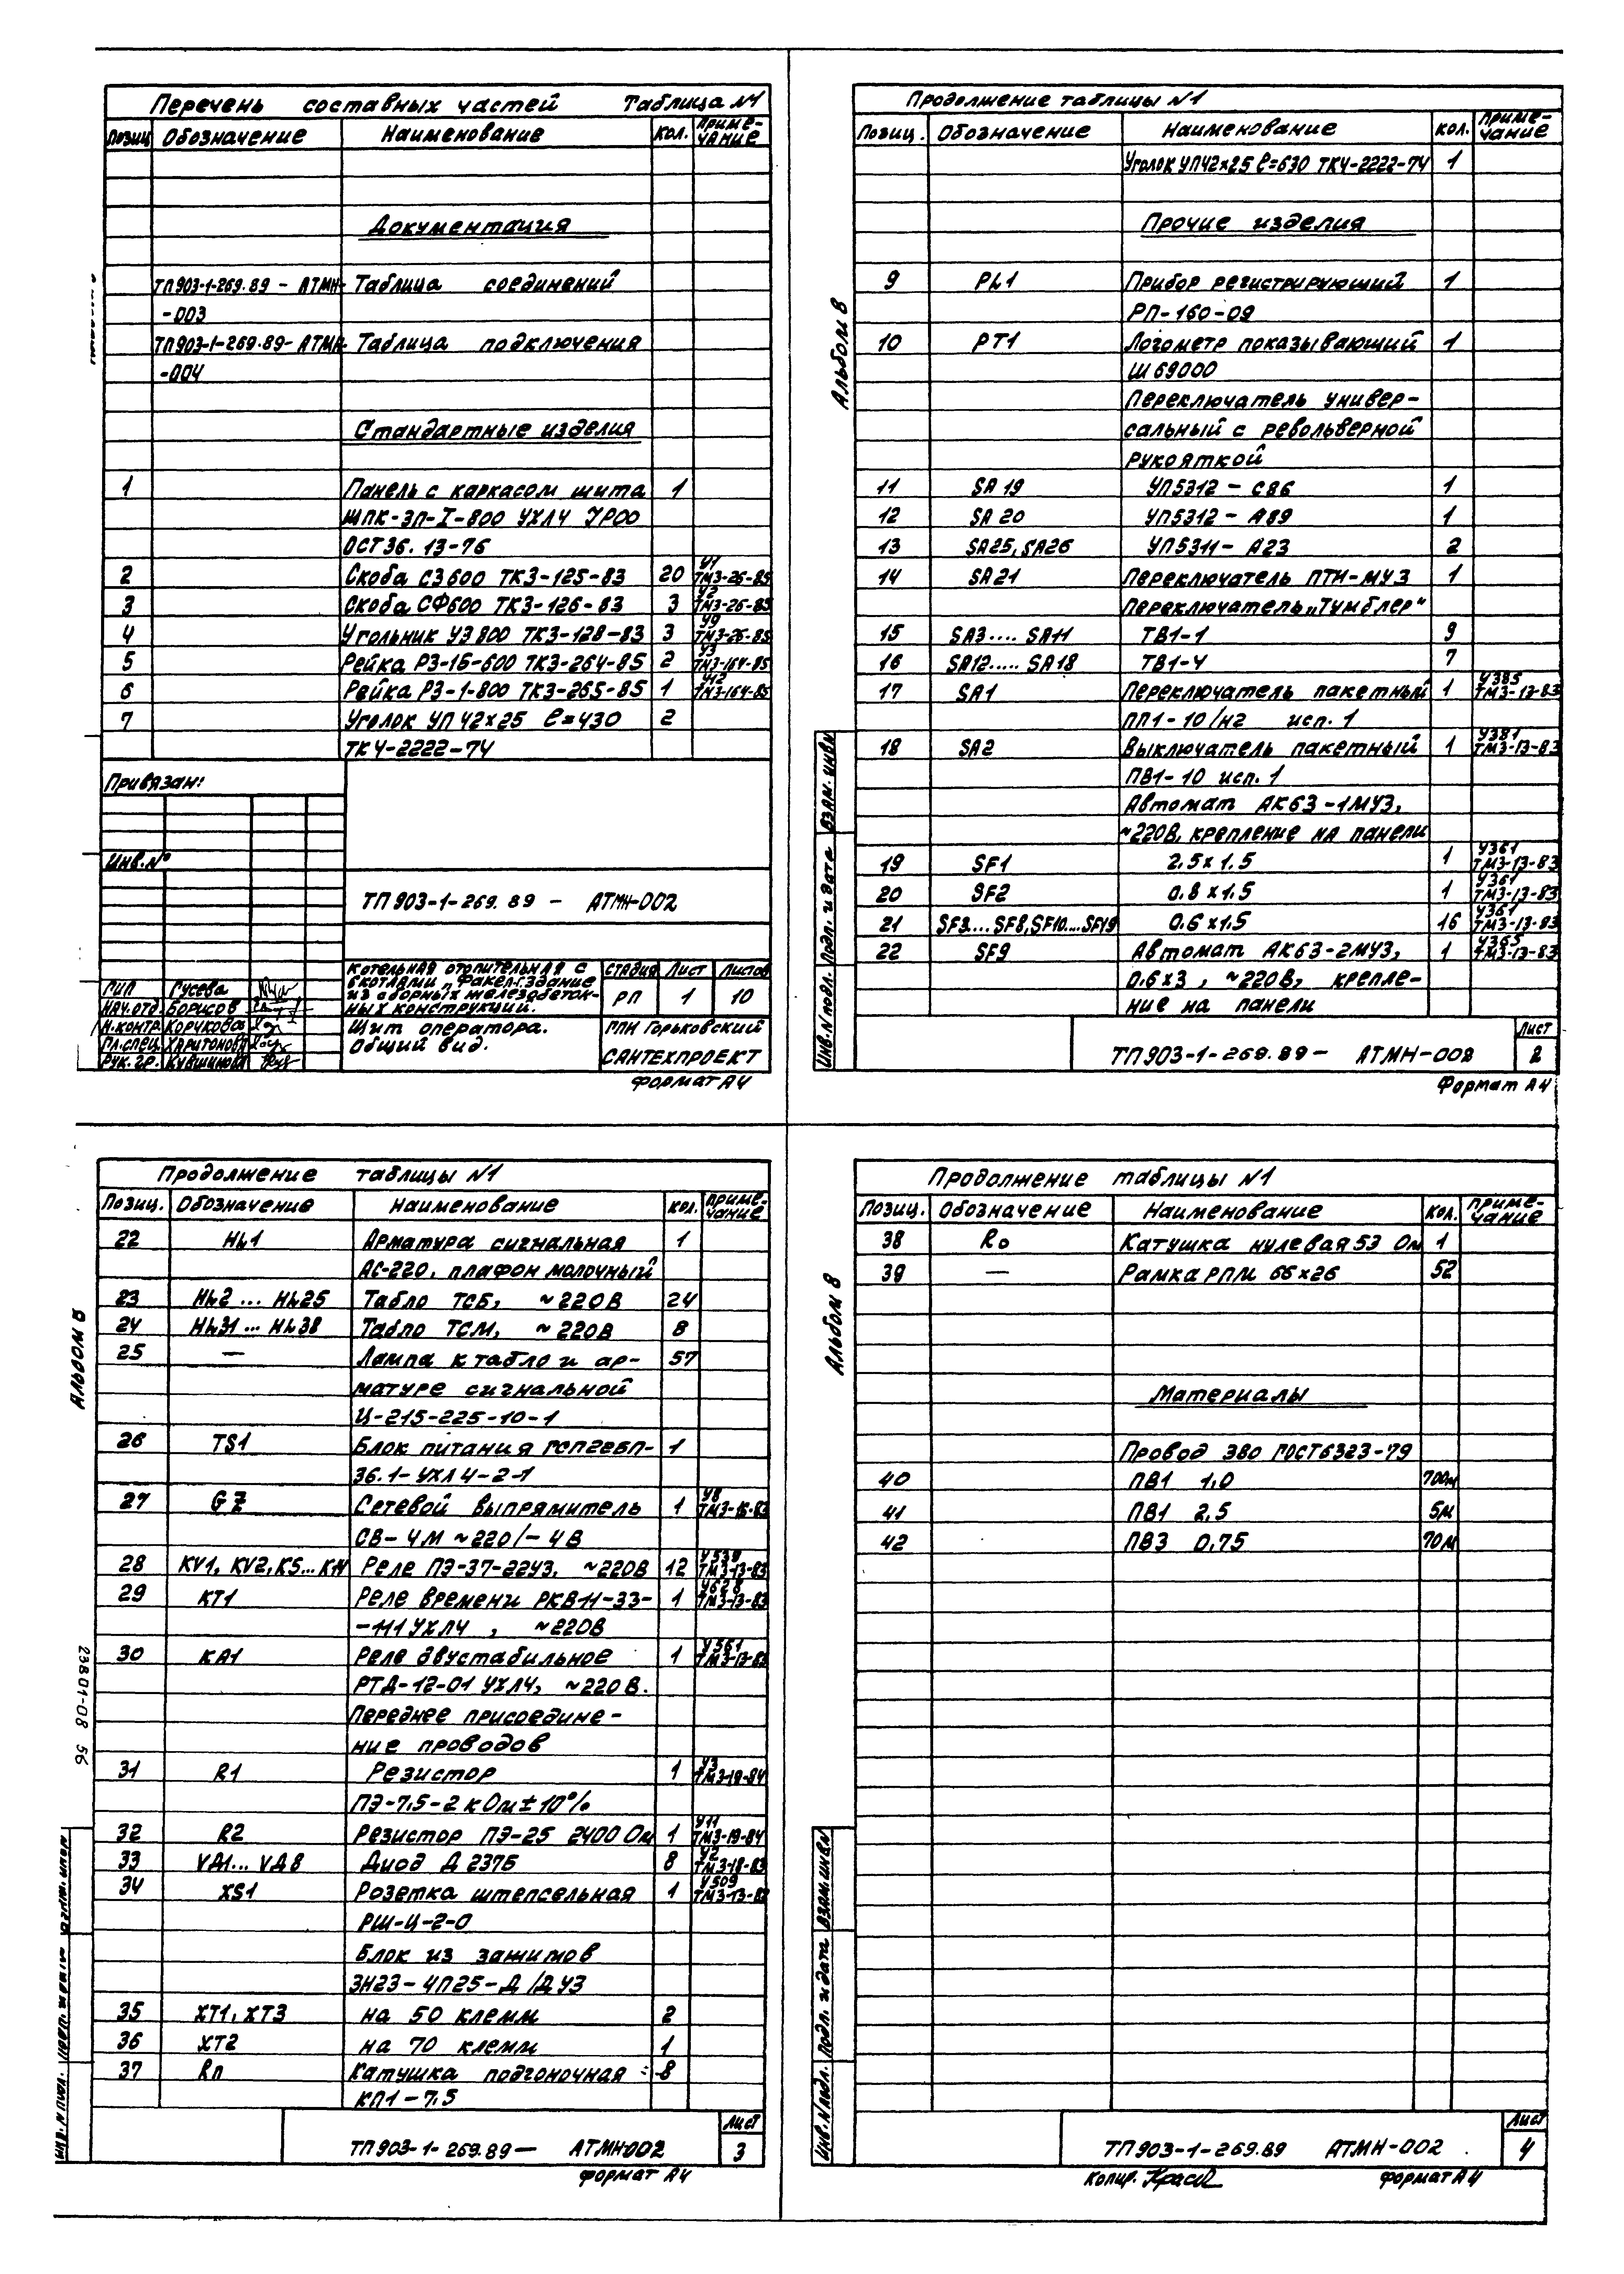 Перечень составных частей Таблица №1
Позиц Обозначение Наименование Кол. Приме-
чание
Документация
ТП903-1-269.89 - АТМН- Таблица соединений
-003
ТП903-1-269.89- АТМН- Таблица подключения
-004
Стандартные изделия
1 Панель с каркасом щита 1
ЩПК-ЗП-I-800 УХЛ4 УР00
ОСТ36.13-76
2 Скоба С3600 ТК3-125-83 20 У1 ТМ3-26-85
3 Скоба СФ600 ТК3-126-83 3 У2 ТМ3-26-85
4 Угольник УЭ800 ТК3-128-83 3 У9 ТМ3-26-85
5 Рейка РЗ-1Б-600 ТК3-264-85 2 У3 ТМ3-164-85
6 Рейка РЗ-1-800 ТК3-265-85 1 У12 ТМ3-164-85
7 Уголок УП 42х25 ℓ=430 2
ТК4-2222-74
Привязан:
Инв.№
ТП 903-1-269.89 - АТМН-002
Котельная отопительная с
котлами „Факел-Г. Здание
из сборных железобетон-
ных конструкций.
Стадия Лист Листов
РП 1 10
Щит оператора.
Общий вид.
ГПИ Горьковский
САНТЕХПРОЕКТ
ГИП Гусева
Нач.отд. Борисов
Н.контр. Корчкова
Гл.спец. Харитонова
Рук.гр. Кувшинова
Формат А4
Продолжение таблицы №1
Позиц. Обозначение Наименование Кол. Приме-
чание
Уголок УП42х25 ℓ=630 ТК4-2222-74 1
Прочие изделия
9 PL1 Прибор регистрирующий 1
РП-160-09
10 PT1 Логометр показывающий 1
Ш 69000
Переключатель универ-
сальный с револьверной
рукояткой
11 SA 19 УП5312 - С86 1
12 SA 20 УП5312 - А89 1
13 SA25, SA26 УП5311 - А23 2
14 SA21 Переключатель ПТИ-МУ3 1
Переключатель „Тумблер"
15 SA3.... SA11 ТВ1-1 9
16 SA12..... SA18 ТВ1-4 7
17 SA1 Переключатель пакетный 1 У385 ТМ3-13-83
ПП1-10/н2 исп. 1
18 SA2 Выключатель пакетный 1 У381 ТМ3-13-83
ПВ1-10 исп. 1
Автомат АК63-1МУ3,
~220В, крепление на панели
19 SF1 2.5х1.5 1 У361 ТМ3-13-83
20 SF2 0.8х1.5 1 У361 ТМ3-13-83
21 SF3...SF8, SF10...SF19 0.6х1.5 16 У361 ТМ3-13-83
22 SF9 Автомат АК63-2МУ3, 1 У365 ТМ3-13-83
0.6х3, ~220В, крепле-
ние на панели
Альбом 8
Инв.№ подл. Подп. и дата Взам. инв№
ТП 903-1-269.89- АТМН-002
Лист
2
Формат А4
Продолжение таблицы №1
Позиц. Обозначение Наименование Кол. Приме-
чание
22 HL1 Арматура сигнальная 1
АС-220, плафон молочный
23 HL2 ... HL25 Табло ТСБ, ~220В 24
24 HL31 ... HL38 Табло ТСМ, ~220В 8
25 — Лампа к табло и ар- 57
матуре сигнальной
Ц-215-225-10-1
26 TS1 Блок питания ГСП22БП- 1
36.1-УХЛ4-2-1
27 GZ Сетевой выпрямитель 1 У8
СВ-4М ~220/-4В
28 KV1, KV2, K5... Реле ПЭ-37-22У3, ~220В 12 У539 ТМ3-13-83
29 KT1 Реле времени РКВ11-33- 1 У628 ТМ3-13-83
-111 УХЛ4, ~220В
30 KA1 Реле двустабильное 1 У561 ТМ3-13-83
РТД-12-01 УХЛ4, ~220В.
Переднее присоедине-
ние проводов
31 R1 Резистор 1 У3 ТМ3-19-84
ПЭ-7,5-2 кОм±10%
32 R2 Резистор ПЭ-25 2400 Ом 1 У11 ТМ3-19-84
33 VД1... VД8 Диод Д 237Б 8 У2 ТМ3-18-83
34 XS1 Розетка штепсельная 1 У509 ТМ3-13-83
РШ-Ц-2-0
Блок из зажимов
ЗН23-4П25-Д/Д У3
35 XT1, XT3 на 50 клемм 2
36 XT2 на 70 клемм 1
37 Rп Катушка подгоночная 8
КП1-7,5
Альбом 8
23801-08 56
ТП 903-1-269.89 — АТМН-002
Лист
3
Формат А4
Продолжение таблицы №1
Позиц. Обозначение Наименование Кол. Приме-
чание
38 Ro Катушка нулевая 53 Ом 1
39 — Рамка РПМ 66х26 52
Материалы
Провод 380 ГОСТ6323-79
40 ПВ1 1,0 700м
41 ПВ1 2,5 5м
42 ПВ3 0,75 70м
Альбом 8
Инв.№ подл. Подп. и дата Взам. инв№
ТП 903-1-269.89 АТМН-002
Лист
4
Копир.
Формат А4